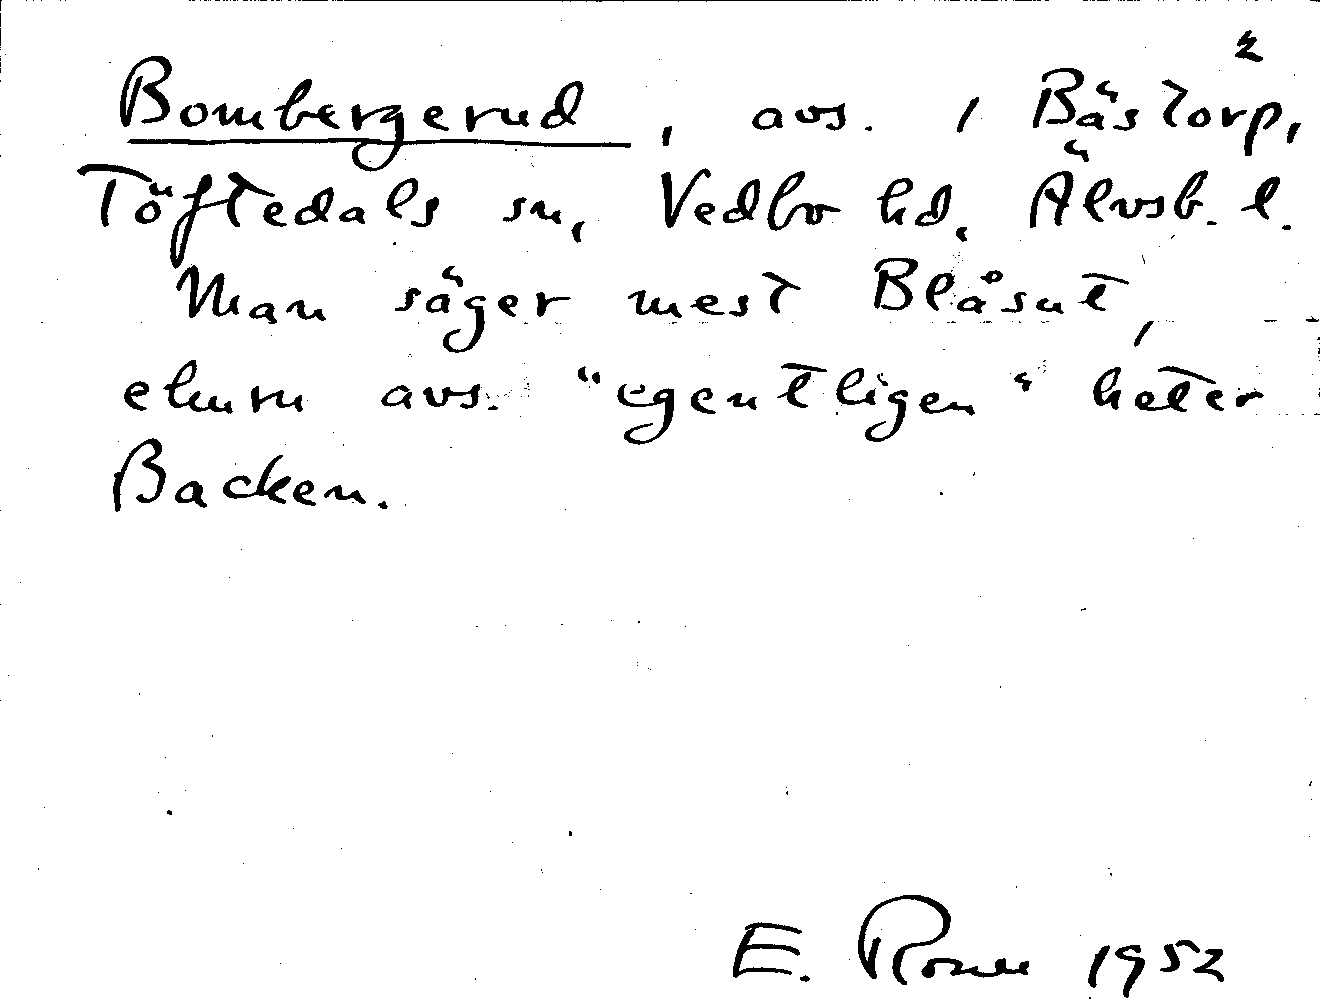 2
Bombergerud, avs. i Bästorp,
Töftedals sn, Vedbo hd, Älvsb. l.
Man säger mest Blåsut,
ehuru avs. "egentligen" heter
Backen.
E. 1952